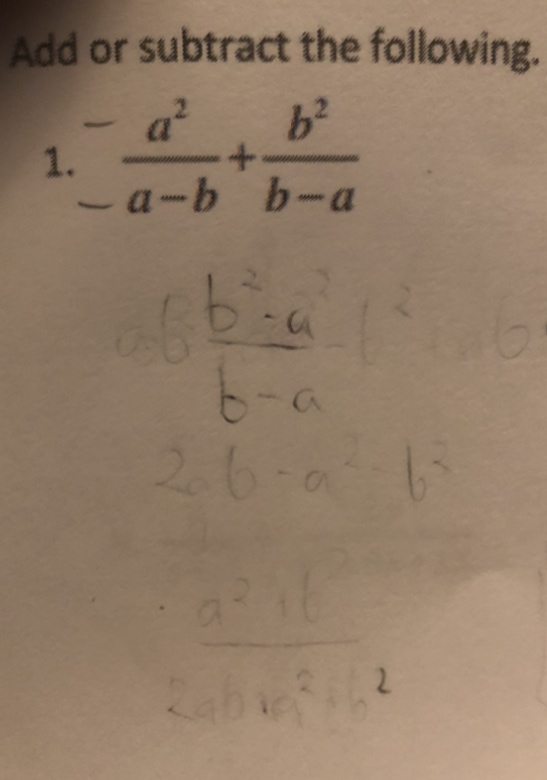 Add or subtract the following.
1. - a²/-(a-b) + b²/(b-a)
b²-a²
b-a
2ab-a²-b²
a²+b
2ab+a²+b²